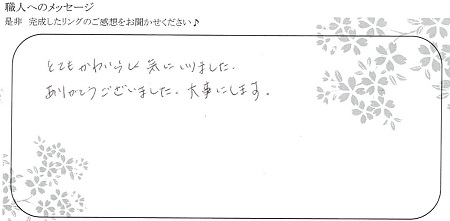 職人へのメッセージ
是非 完成したリングのご感想をお聞かせください♪
とてもかわいらしく気にいりました.
ありがとうございました. 大事にします。